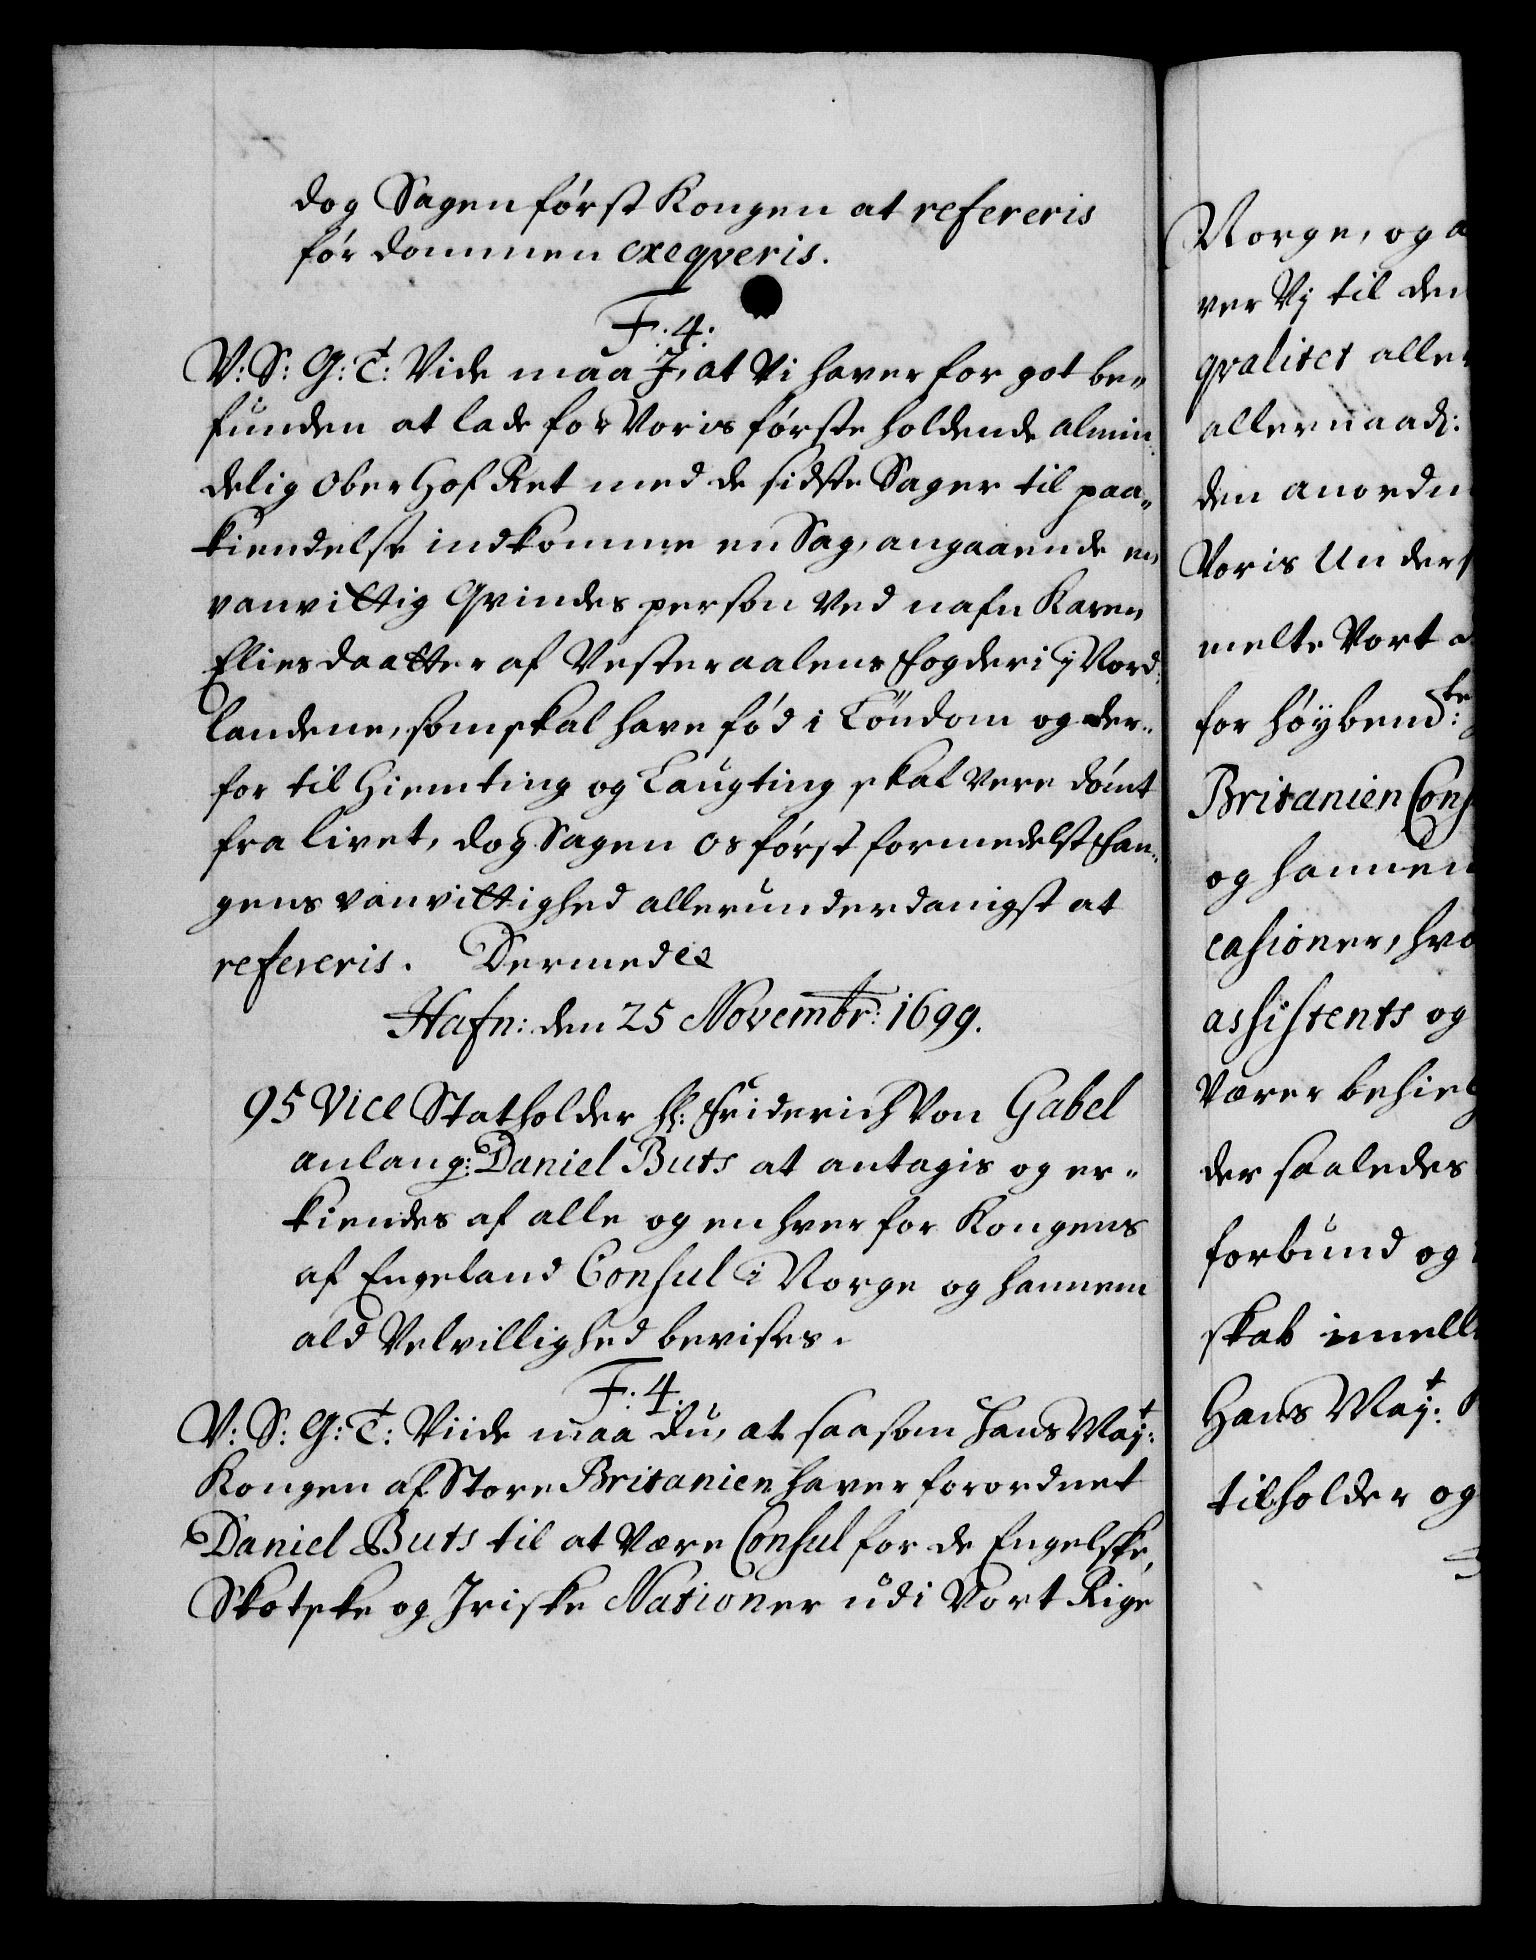 dog Sagen først Kongen at refereris
før dommen exeqveris.
F. 4.
V: S: G: T: Vide maa J, at Vi haver for got be„
funden at lade for Voris første holdende almin„
delig Ober Hof Ret med de sidste Sager til paa„
kiendelse indkomme en Sag, angaaende en
vanvittig Qvindes person ved nafn Karen
Eliesdaatter af Vesteraalens Fogderi i Nord„
landene, som skal have fød i Löndom og der„
for til Hiemting og Laugting skal vere dömt
fra livet, dog Sagen os først formedelst Fan„
gens vanvittighed allerunderdanigst at
refereris. Dermed &c
Hafn: den 25 Novembr: 1699.
95 Vice Statholder H: Friderich Von Gabel
anlang: Daniel Buts at antagis og er„
kiendes af alle og enhver for Kongens
af Engeland Consul i Norge og hannem
ald Velvillighed bevises.
F. 4.
V: S: G: T: Viide maa du, at saasom Hans Maj:t
Kongen af Store Britanien haver forordnet
Daniel Buts til at være Consul for de Engelske,
Skotske og Jriske Nationer udi Vort Rige
Norge, og a
ver Vj til den
qvalitet aller
allernaad:
den anordn
Voris Unders
melte Vort a
for høybem:te
Britanien Cons
og hannem
casioner, hvo
assistents og
Værer behielp
der saaledes
forbund og
skab imell
Hans Maj:t
tilholder og